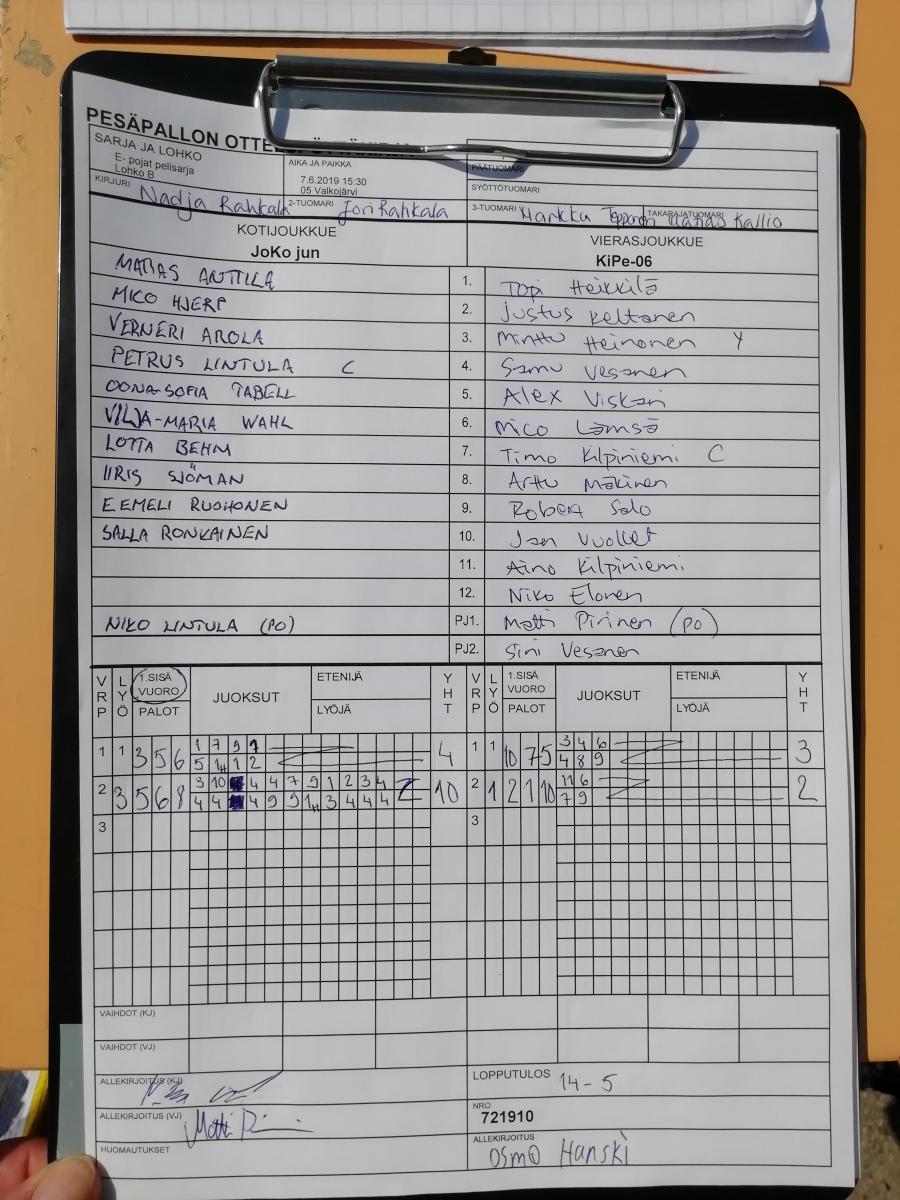 PESÄPALLON
SARJA JA LOHKO
E- pojat pelisarja
Lohko B
AIKA JA PAIKKA
7.6.2019 15:30
05 Valkojärvi
PÄÄTUOMARI
SYÖTTÖTUOMARI
KIRJURI Nadja Rahkala 2-TUOMARI Jori Rahkala 3-TUOMARI Markku TAKARAJATUOMARI Kallio
KOTIJOUKKUE VIERASJOUKKUE
JoKo jun KiPe-06
MATIAS ANTTILA 1. Topi Heikkilä
MICO HJERP 2. Justus Keltanen
VERNERI AROLA 3. Minttu Heinonen Y
PETRUS LINTULA C 4. Samu Vesanen
OONA-SOFIA TABELL 5. Alex Viskari
VILJA-MARIA WAHL 6. Nico Lämsä
LOTTA BEHM 7. Timo Kilpiniemi C
IIRIS SJÖMAN 8. Arttu Mäkinen
EEMELI RUOHONEN 9. Robert Salo
SALLA RONKAINEN 10. Jan
11. Aino Kilpiniemi
12. Niko Elonen
NIKO LINTULA (PO) PJ1. Matti Pirinen (PO)
PJ2. Sini Vesanen
VRP LYÖ 1.SISÄ VUORO PALOT JUOKSUT ETENIJÄ LYÖJÄ YHT VRP LYÖ 1.SISÄ VUORO PALOT JUOKSUT ETENIJÄ LYÖJÄ YHT
1 1 3 5 6 1 7 9 1 4 1 1 10 7 5 3 4 6 3
5 1H 1 2 4 8 9
2 3 5 6 8 3 10 4 4 7 9 1 2 3 4 10 2 1 2 1 10 11 6 2
4 4 4 9 9 1H 3 4 4 4 7 9
3 3
VAIHDOT (KJ)
VAIHDOT (VJ)
ALLEKIRJOITUS (KJ)
LOPPUTULOS 14-5
ALLEKIRJOITUS (VJ) Matti
NRO
721910
HUOMAUTUKSET
ALLEKIRJOITUS
Osmo Hanski